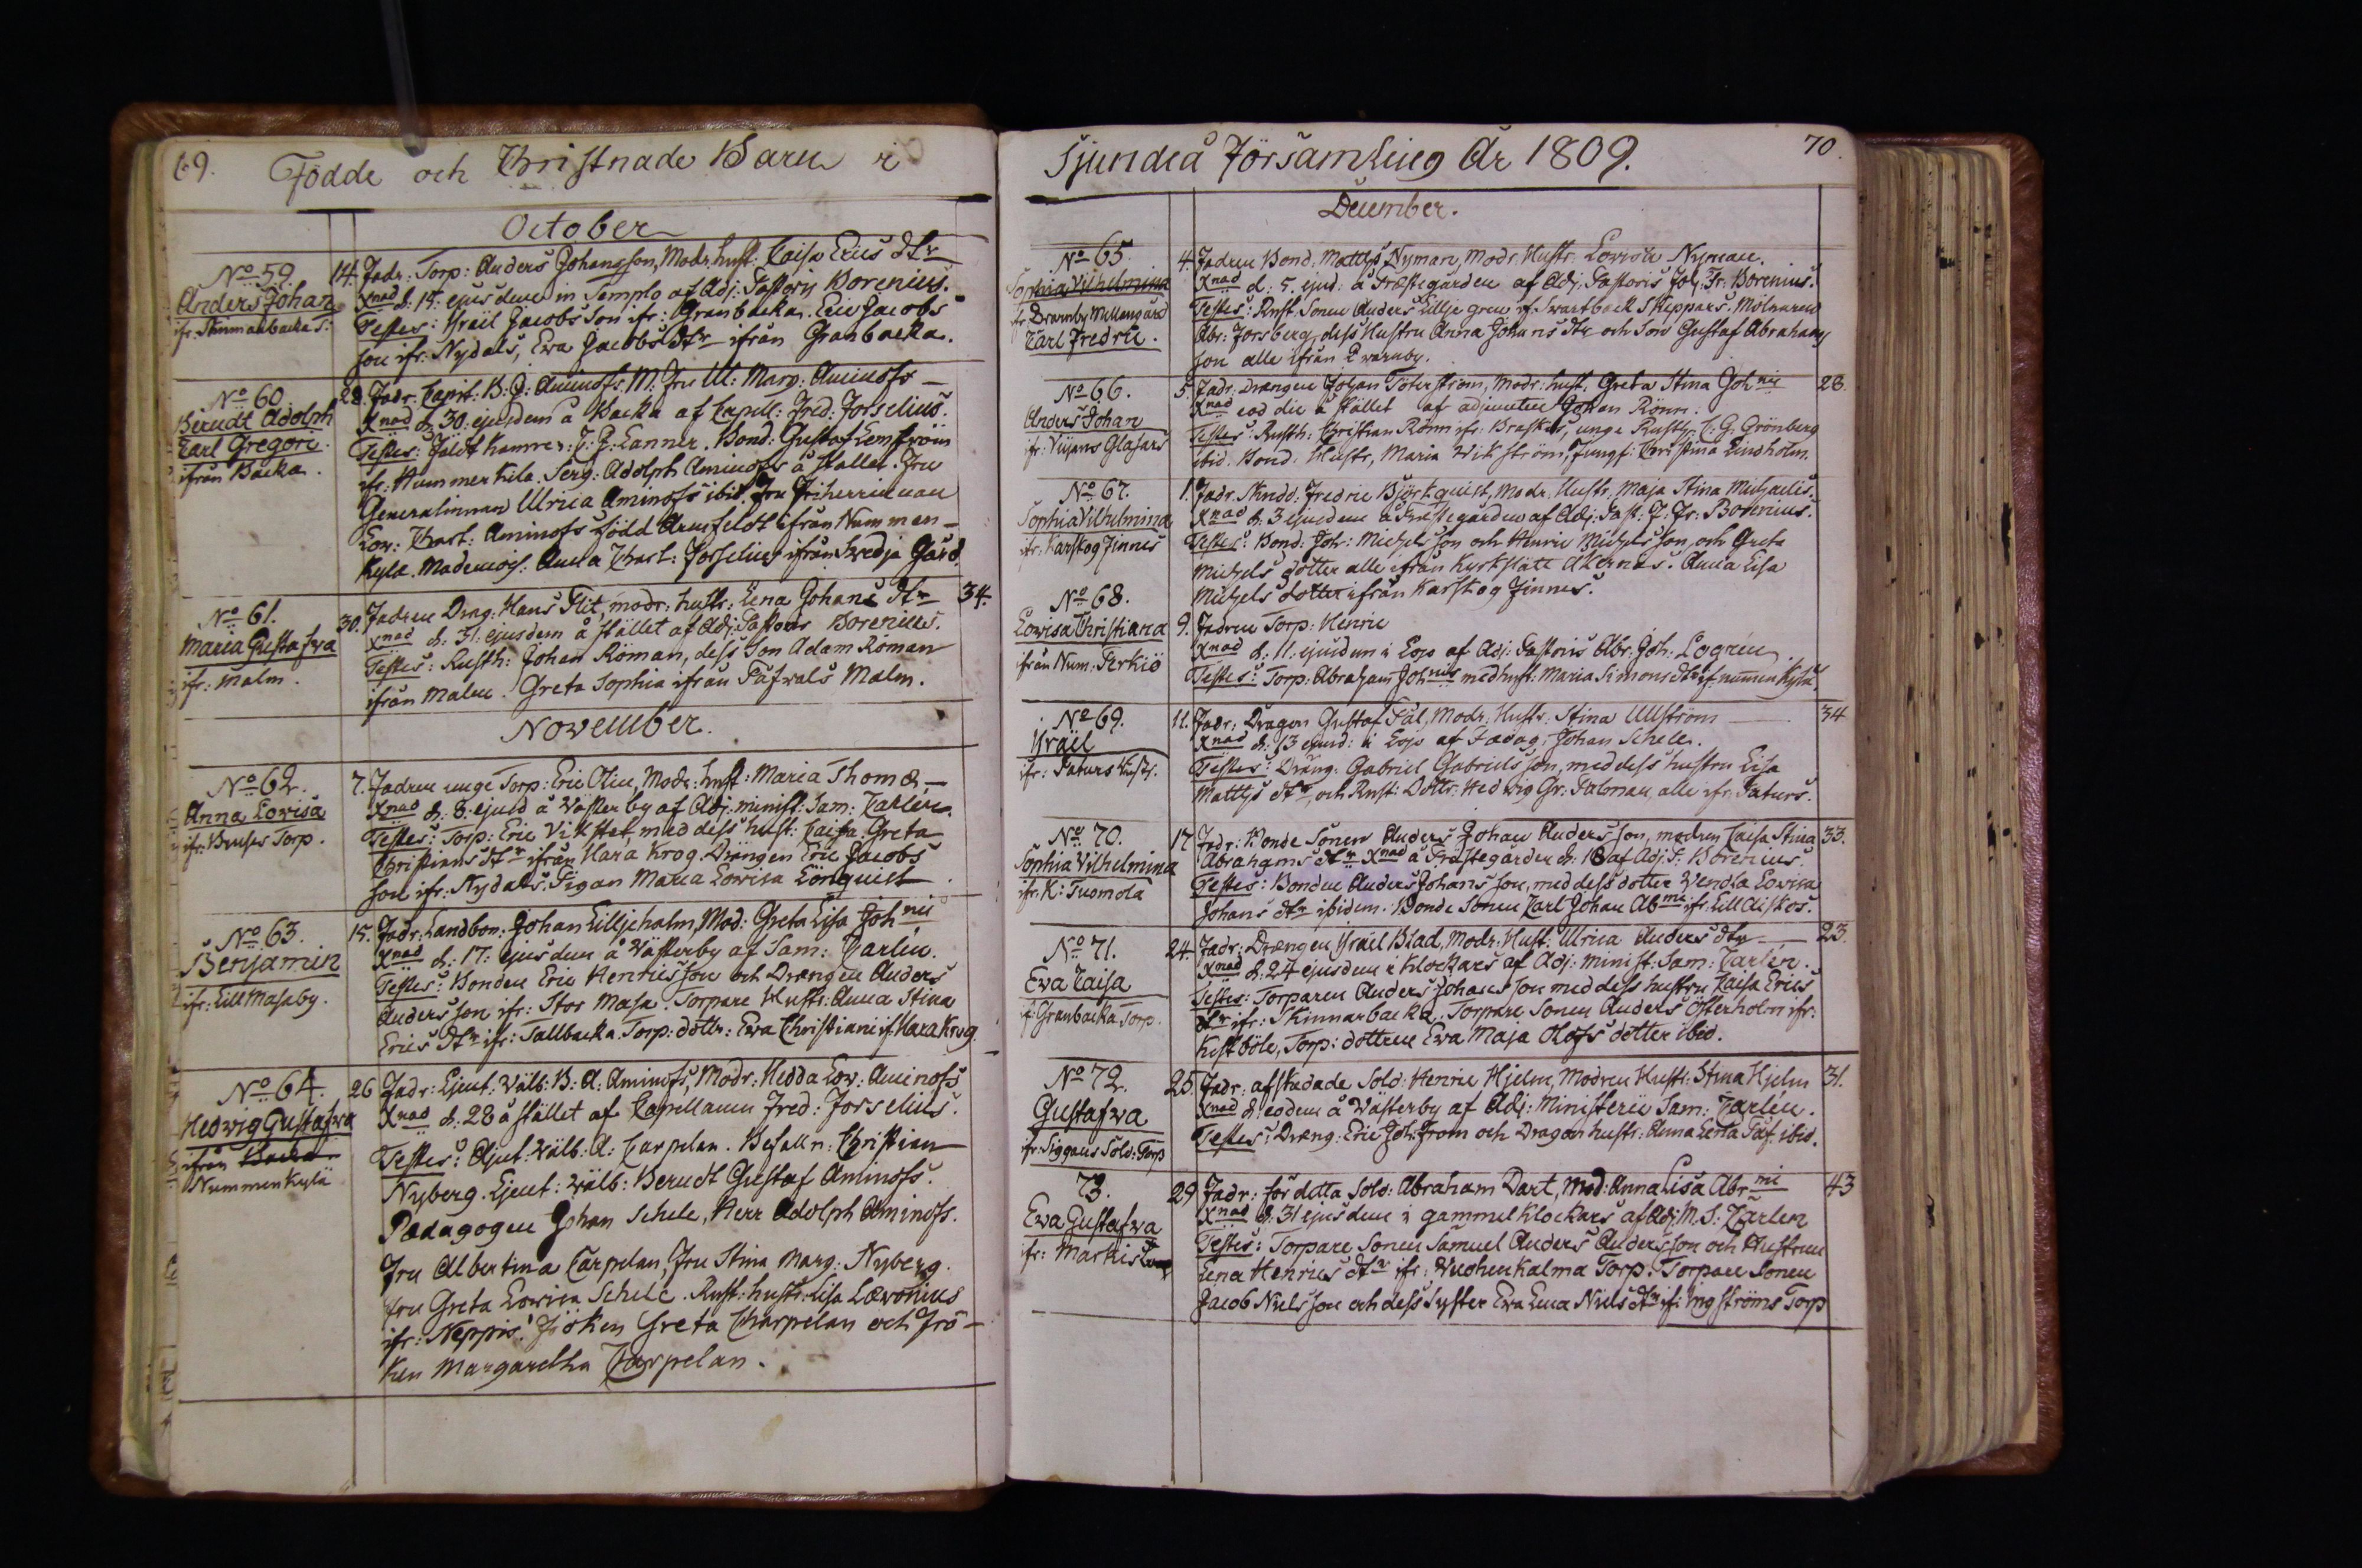 69.
Födde och Christnade Barn i
October
No 59.
Anders Johan
ifr. Skinnarbacka T:
14. Fadr: Torp: Anders Johansson, Modr. hust: Caisa Erics dtr
Xnad d. 15. ejusdem in Templo af Adj: Pastoris Borenius.
Testes: Israël Jacobs Son ifr: Granbacka. Eric Jacobs
son ifr. Nydals, Ewa Jacobs dtr ifrån Granbacka.
No 60
Berndt Adolph
Carl Gregori
ifrån Backa.
28. Fadr. Capit: B: G: Aminoff M: Fru Ul: Marg: Aminoff
Xnad d. 30. ejusdem å Backa af Capell: Fred: Forselius.
Testes: Fäldt Kamrer: J: G: Lanner. Bond: Gustaf Lemström
ifr: Hummerkila. Serg: Adolph Aminoff å stället. Fru
Generalinnan Ulrica Aminoff ibid. Fru Friherrinnan
Lov: Charl: Aminoff född Armfeldt ifrån Nummen-
kyla. Mademois: Anna Charl: Forselius ifrån Svedja Gård.
No 61.
Maria Gustafva
ifr: Malm.
30. Fadren Drag: Hans Flit, modr: hustr: Lena Johans dtr 34.
Xnad d. 31. ejusdem å stället af Adj: Pastoris Borenius.
Testes: Rusth: Johan Röman, dess Son Adam Röman
ifrån Malm. Greta Sophia ifrån Tåfvals Malm.
November.
No 62.
Anna Lovisa
ifr: Bruses Torp.
7. Fadren unge Torp: Eric Olin, Modr: hust: Maria Thomæ,
Xnad d. 8. ejusd å Västerby af Adj: minist: Sam: Carlén.
Testes: Torp: Eric Vikstet med dess hust: Caisa Greta
Christians dtr ifrån Hara Krog. Drängen Eric Jacobs
son ifr. Nydals. Pigan Maria Lovisa Lönquist
No 63.
Benjamin
ifr: Lill Masaby.
15. Fadr: Landbon: Johan Lilljeholm, Mod: Greta Lisa Joh nii
Xnad d. 17: ejusdem å Västerby af Sam: Carlén.
Testes: Bonden Eric Henricsson och Drængen Anders
Anders son ifr: Stor Masa. Torpare Hustr: Anna Stina
Erics dtr ifr: Tallbacka. Torp: dottr: Ewa Christiani if: Hara Krog.
No 64.
Hedvig Gustafva
ifrån Backa
Nummenkylä
26 Fadr: Lieut: Välb: B: A: Aminoff, Modr: Hedda Lov: Aminoff
Xnad d. 28 å stället af Capellanen Fred: Forselius.
Testes: Ajut: Välb: A: Carpelan. Befalln: Christian
Nyberg. Lieut: Välb: Berndt Gustaf Aminoff.
Pædagogen Johan Schele, Herr Adolph Aminoff.
Fru Albertina Carpelan, Fru Stina Marg: Nyberg.
Fru Greta Lovisa Schele. Rust: hustr: Lisa Lævonius
ifr: Neppis. Fröken Greta Charpelan och Frö-
ken Margaretha Carpelan.
Sjundeå Församling År 1809.
70.
December.
No 65.
Sophia Vilhelmina
fr. Qvarnby Mellangård
Carl Fredric.
4. Fadren Bond: Matths Nyman, Modr: Hustr: Lovisa Nyman.
Xnad d: 5. ejusd: å Præstegården af Adj: Pastoris Joh: Fr: Borenius.
Testes: Rust. Sonen Anders Lilljegren if. Svartback Skeppars. Mölnaren
Abr: Forsberg, dess Hustru Anna Johans dtr och Son Gustaf Abrahams
son alle ifrån Qvarnby.
No 66.
Anders Johan
ifr: Vijans Glasars
5. Fadr: Drængen Johan Söderström, Modr: hust: Greta Stina Joh nii 28.
Xnad eod die å stället af adjuncten Johan Rönn.
Testes: Rusth: Christian Rönn ifr: Braskes, unge Rusth: C: G. Grönberg
ibid. Bond: Hustr: Maria Wikström, Jungf: Christina Lindholm.
No 67.
Sophia Vilhelmina
ifr: Karskog Finnes
1. Fadr. Skrädd: Fredric Björkquist, Modr: Hustr: Maja Stina Michaelis.
Xnad d. 3 ejusdem å Præstegården af Adj: Past: J: Fr: Borenius.
Testes: Bond: Joh: Michels son och Henric Michels son, och Greta
Michels dotter alle ifrån Kyrkslätt Åkernäs. Anna Lisa
Michels dotter ifrån Karskog Finnes.
No 68.
Lovisa Christiana
ifrån Num: Perkiö
9. Fadren Torp: Henric
Xnad d. 11. ejusdem i Lojo af Adj: Pastoris Abr: Joh: Logrén.
Testes: Torp: Abraham Joh nis med hust: Maria Simons dtr if: nummen kylä.
No 69.
Israël
ifr: Paturs Kustj.
11. Fadr: Dragon Gustaf Pål, Modr: Hustr: Stina Ullström 34
Xnad d. 13 ejusd: i Lojo af Pædag: Johan Schele.
Testes: Dräng: Gabriel Gabriels son, med dess hustru Lisa
Matths dtr, och Rust: Dottr: Hedvig Gr: Palman, alle ifr: Paturs.
No 70.
Sophia Vilhelmina
ifr. K: Tuomola
17 Fadr: Bonde Sonen Anders Johan Anders son, modren Caisa Stina 33.
Abrahams dtr Xnad å Præstegården d: 18 af Adj: P: Borenius.
Testes: Bonden Anders Johans son, med dess dotter Wendla Lovisa
Johans dtr ibidem. Bonde Sonen Carl Johan Ab mi ifr: Lill Aiskos.
No 71.
Eva Caisa
if: Granbacka Torp.
24. Fadr: Drængen Israel Blad, Modr: Hust: Ulrica Anders dtr 23.
Xnad d. 24 ejusdem i Klockars af Adj: minist: Sam: Carlén.
Testes: Torparen Anders Johans son med dess hustru Caisa Erics
dtr ifr: Skinnarbacka. Torpare Sonen Anders Österholm ifr:
Kestböle, Torp: dottren Ewa Maja Olofs dotter ibid.
No 72.
Gustafva
ifr: Siggans Sold: Torp
25. Fadr: afskedade Sold: Henric Hjelm, Modren Hustr: Stina Hjelm 31.
Xnad d: eodem å Västerby af Adj: Ministerii Sam: Carlén.
Testes: Dræng: Eric Joh: From och Dragon hustr: Anna Lena Täf. ibid.
73.
Ewa Gustafva
ifr: Markis
29 Fadr: för detta Sold: Abraham Dart, Mod: Anna Lisa Abr mi 43
Xnad d. 31 ejusdem i gammel Klockars af Adj. M. S: Carlén
Testes: Torpare Sonen Samuel Anders Anders son och Hustrun
Lena Henrics dtr ifr: Vuohenkalma Torp. Torpare Sonen
Jacob Niels son och dess Syster Ewa Lena Niels dtr if: Ingströms Torp